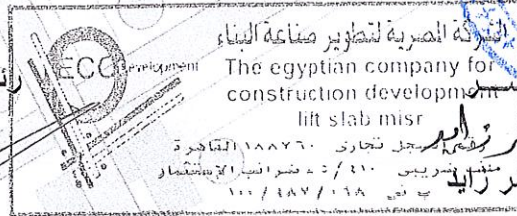 الشركة المصرية لتطوير صناعة البناء
ECC development
The egyptian company for
construction development
lift slab misr
سجل تجارى ١٨٨٧٦٠ القاهرة
ضريبى ٤١٠ / ٥ ضرائب الإستثمار
١٠٠ / ٤٨٧ / ١٦٨